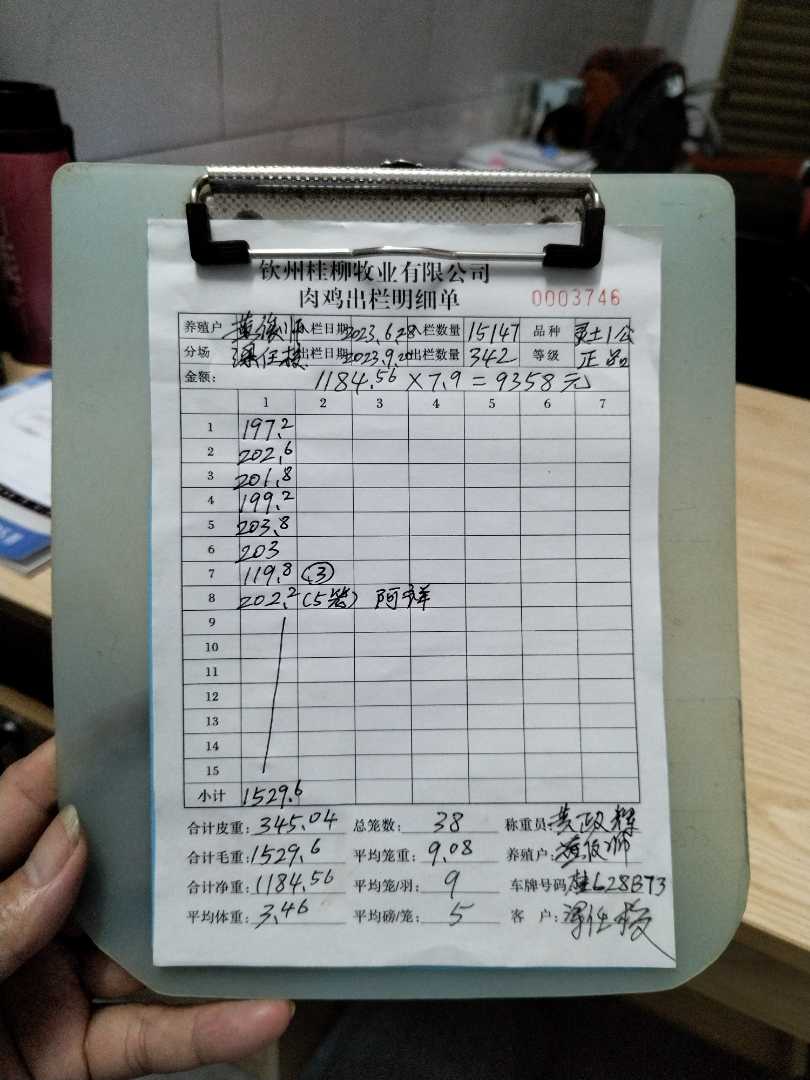 钦州桂柳牧业有限公司
肉鸡出栏明细单 0003746
养殖户 黄俊师 入栏日期 2023.6.28 入栏数量 15147 品种 灵土1公
分场 出栏日期 2023.9.20 出栏数量 342 等级 正品
金额: 1184.56×7.9=9358元
1 2 3 4 5 6 7
1 197.2
2 202.6
3 201.8
4 199.2
5 203.8
6 203
7 119.8 ③
8 202.2 (5笼) 阿祥
9
10
11
12
13
14
15
小计 1529.6
合计皮重: 345.04 总笼数: 38 称重员:
合计毛重: 1529.6 平均笼重: 9.08 养殖户: 黄俊师
合计净重: 1184.56 平均笼/羽: 9 车牌号码 桂L28BT3
平均体重: 3.46 平均磅/笼: 5 客户: